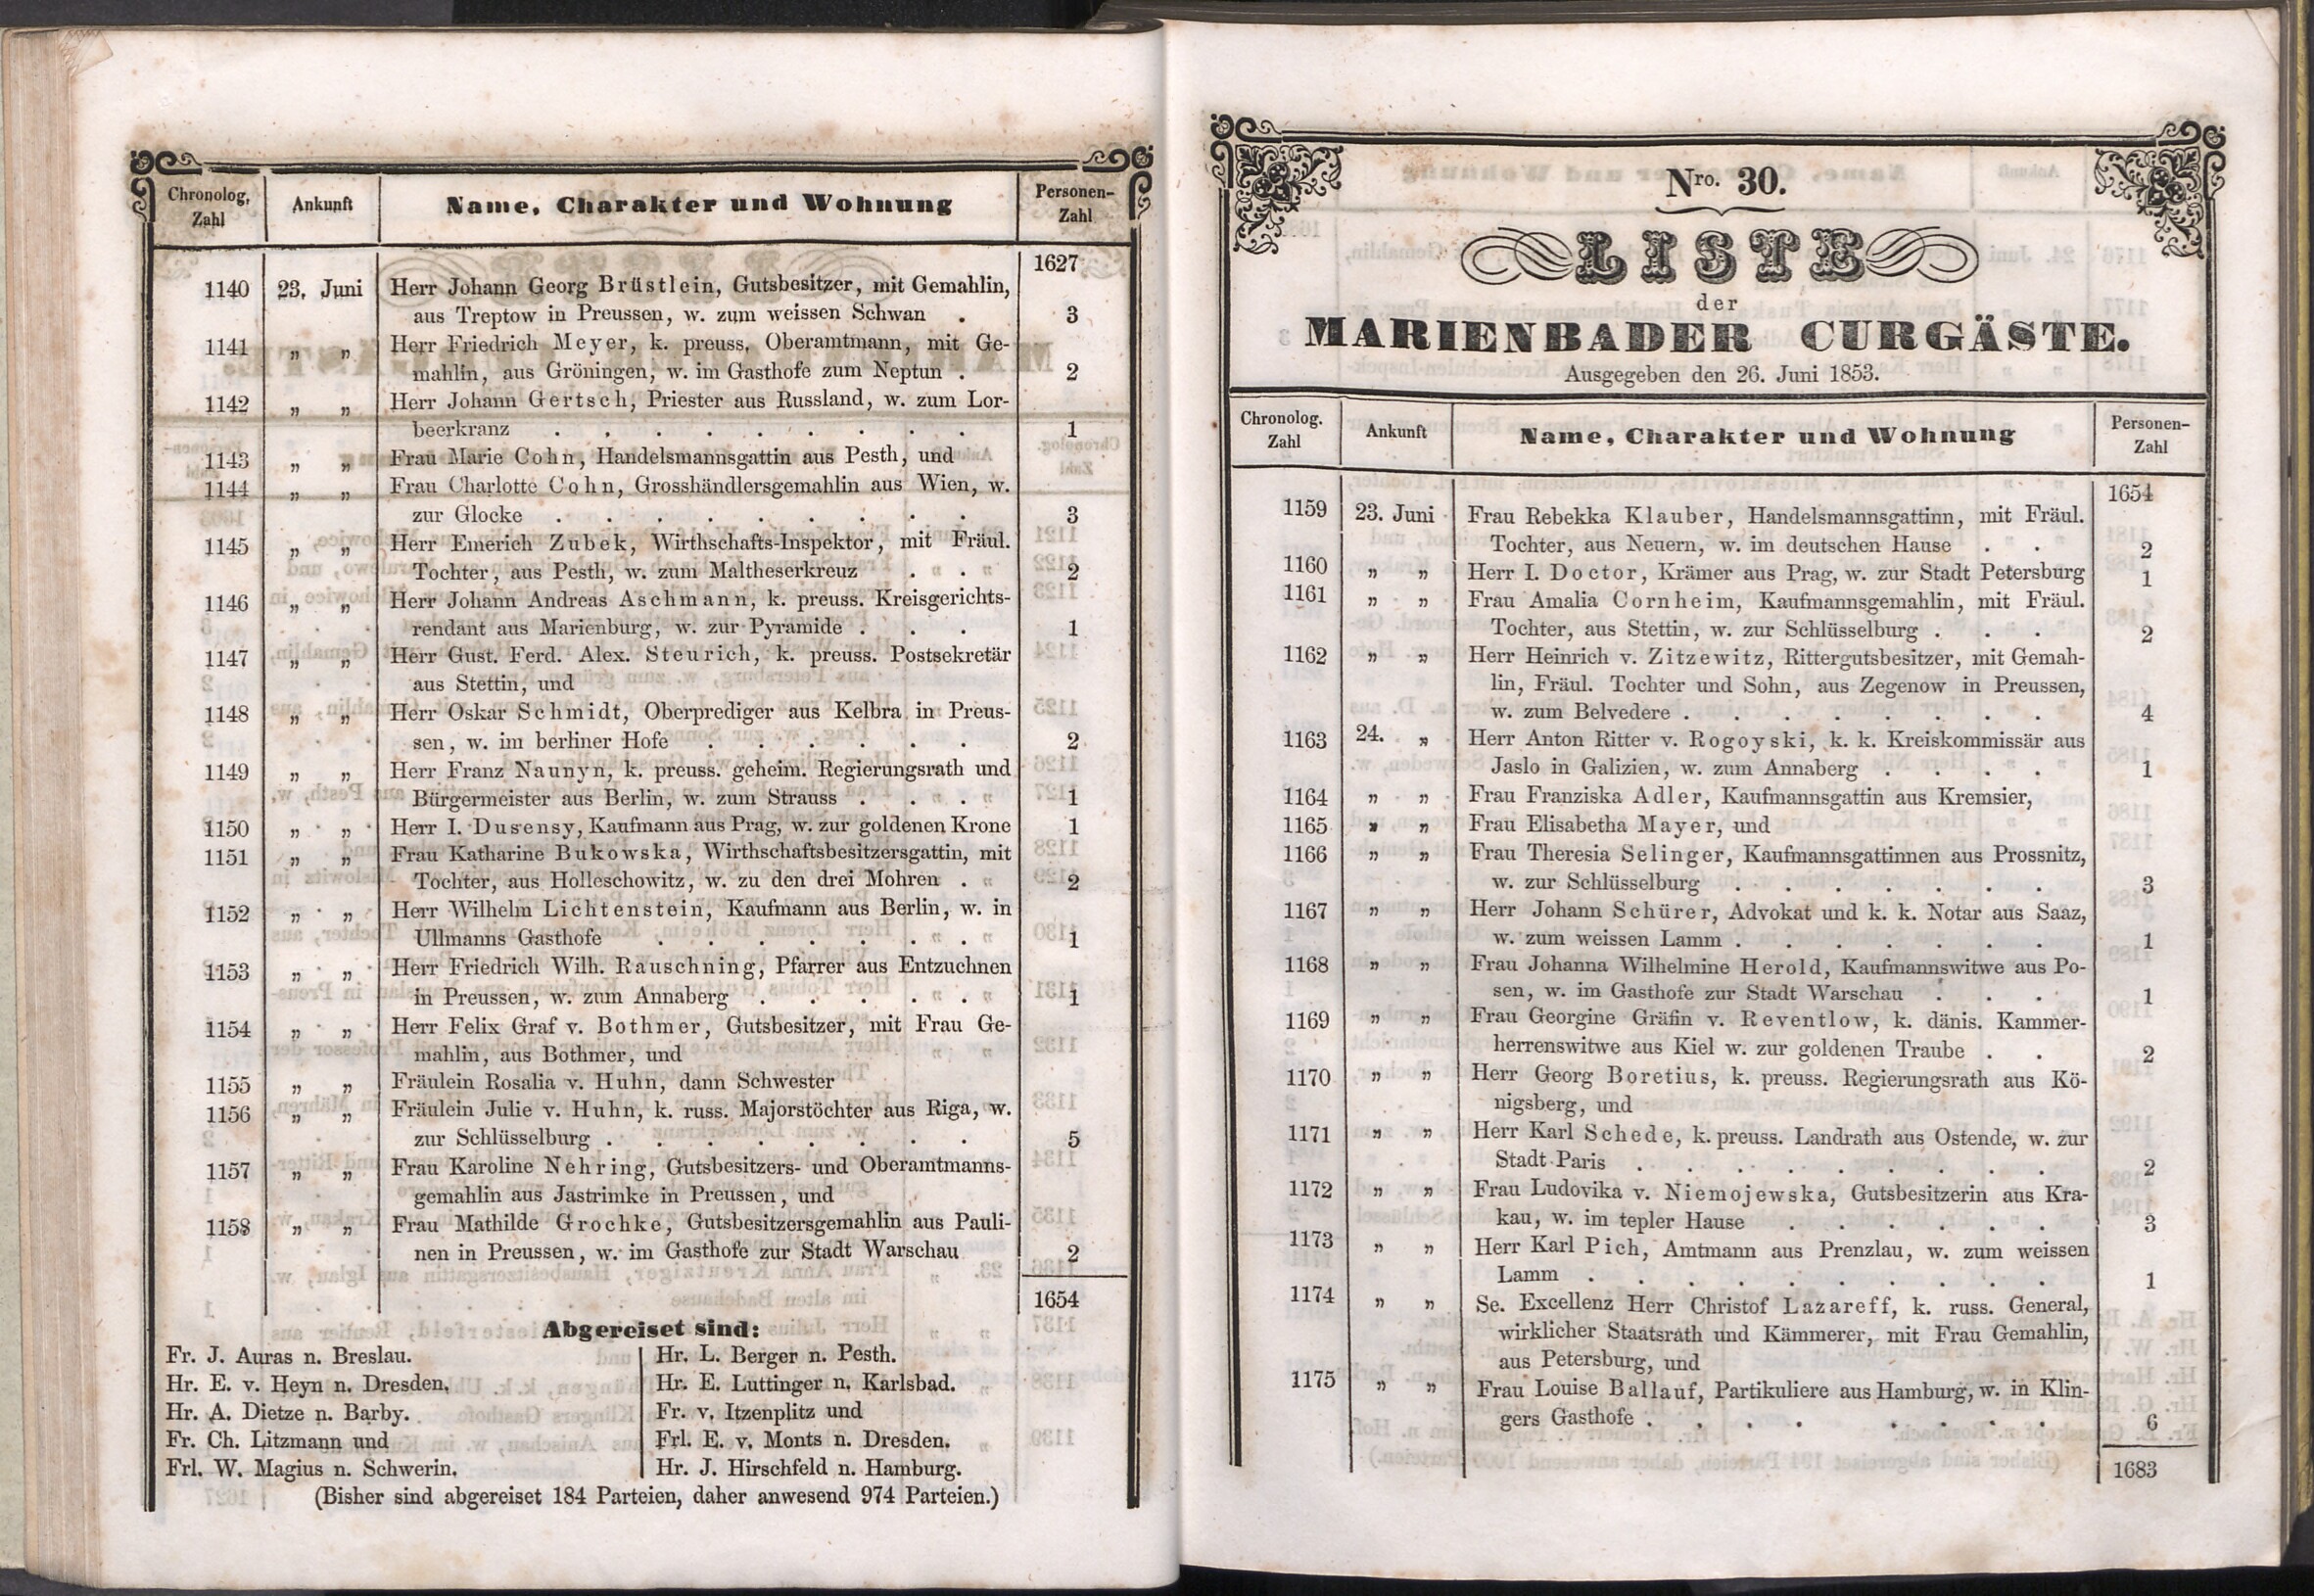 Chronolog. Zahl | Ankunft | Name, Charakter und Wohnung | Personen-Zahl
1627
1140 23. Juni Herr Johann Georg Brüstlein, Gutsbesitzer, mit Gemahlin,
aus Treptow in Preussen, w. zum weissen Schwan . 3
1141 „ „ Herr Friedrich Meyer, k. preuss. Oberamtmann, mit Ge-
mahlin, aus Gröningen, w. im Gasthofe zum Neptun . 2
1142 „ „ Herr Johann Gertsch, Priester aus Russland, w. zum Lor-
beerkranz . . . . . . . . . 1
1143 „ „ Frau Marie Cohn, Handelsmannsgattin aus Pesth, und
1144 „ „ Frau Charlotte Cohn, Grosshändlersgemahlin aus Wien, w.
zur Glocke . . . . . . . . . 3
1145 „ „ Herr Emerich Zubek, Wirthschafts-Inspektor, mit Fräul.
Tochter, aus Pesth, w. zum Maltheserkreuz . . 2
1146 „ „ Herr Johann Andreas Aschmann, k. preuss. Kreisgerichts-
rendant aus Marienburg, w. zur Pyramide . . . 1
1147 „ „ Herr Gust. Ferd. Alex. Steurich, k. preuss. Postsekretär
aus Stettin, und
1148 „ „ Herr Oskar Schmidt, Oberprediger aus Kelbra in Preus-
sen, w. im berliner Hofe . . . . . . 2
1149 „ „ Herr Franz Naunyn, k. preuss. geheim. Regierungsrath und
Bürgermeister aus Berlin, w. zum Strauss . . . 1
1150 „ „ Herr I. Dusensy, Kaufmann aus Prag, w. zur goldenen Krone 1
1151 „ „ Frau Katharine Bukowska, Wirthschaftsbesitzersgattin, mit
Tochter, aus Holleschowitz, w. zu den drei Mohren . 2
1152 „ „ Herr Wilhelm Lichtenstein, Kaufmann aus Berlin, w. in
Ullmanns Gasthofe . . . . . . . 1
1153 „ „ Herr Friedrich Wilh. Rauschning, Pfarrer aus Entzuchnen
in Preussen, w. zum Annaberg . . . . . 1
1154 „ „ Herr Felix Graf v. Bothmer, Gutsbesitzer, mit Frau Ge-
mahlin, aus Bothmer, und
1155 „ „ Fräulein Rosalia v. Huhn, dann Schwester
1156 „ „ Fräulein Julie v. Huhn, k. russ. Majorstöchter aus Riga, w.
zur Schlüsselburg . . . . . . . . 5
1157 „ „ Frau Karoline Nehring, Gutsbesitzers- und Oberamtmanns-
gemahlin aus Jastrimke in Preussen, und
1158 „ „ Frau Mathilde Grochke, Gutsbesitzersgemahlin aus Pauli-
nen in Preussen, w. im Gasthofe zur Stadt Warschau 2
1654
Abgereiset sind:
Fr. J. Auras n. Breslau.
Hr. E. v. Heyn n. Dresden.
Hr. A. Dietze n. Barby.
Fr. Ch. Litzmann und
Frl. W. Magius n. Schwerin.
Hr. L. Berger n. Pesth.
Hr. E. Luttinger n. Karlsbad.
Fr. v. Itzenplitz und
Frl. E. v. Monts n. Dresden.
Hr. J. Hirschfeld n. Hamburg.
(Bisher sind abgereiset 184 Parteien, daher anwesend 974 Parteien.)
Nro. 30.
LISTE
der
MARIENBADER CURGÄSTE.
Ausgegeben den 26. Juni 1853.
Chronolog. Zahl | Ankunft | Name, Charakter und Wohnung | Personen-Zahl
1654
1159 23. Juni Frau Rebekka Klauber, Handelsmannsgattinn, mit Fräul.
Tochter, aus Neuern, w. im deutschen Hause . . 2
1160 „ „ Herr I. Doctor, Krämer aus Prag, w. zur Stadt Petersburg 1
1161 „ „ Frau Amalia Cornheim, Kaufmannsgemahlin, mit Fräul.
Tochter, aus Stettin, w. zur Schlüsselburg . . . 2
1162 „ „ Herr Heinrich v. Zitzewitz, Rittergutsbesitzer, mit Gemah-
lin, Fräul. Tochter und Sohn, aus Zegenow in Preussen,
w. zum Belvedere . . . . . . . . 4
1163 24. „ Herr Anton Ritter v. Rogoyski, k. k. Kreiskommissär aus
Jaslo in Galizien, w. zum Annaberg . . . . 1
1164 „ „ Frau Franziska Adler, Kaufmannsgattin aus Kremsier,
1165 „ „ Frau Elisabetha Mayer, und
1166 „ „ Frau Theresia Selinger, Kaufmannsgattinnen aus Prossnitz,
w. zur Schlüsselburg . . . . . . . 3
1167 „ „ Herr Johann Schürer, Advokat und k. k. Notar aus Saaz,
w. zum weissen Lamm . . . . . . . 1
1168 „ „ Frau Johanna Wilhelmine Herold, Kaufmannswitwe aus Po-
sen, w. im Gasthofe zur Stadt Warschau . . . 1
1169 „ „ Frau Georgine Gräfin v. Reventlow, k. dänis. Kammer-
herrenswitwe aus Kiel w. zur goldenen Traube . . 2
1170 „ „ Herr Georg Boretius, k. preuss. Regierungsrath aus Kö-
nigsberg, und
1171 „ „ Herr Karl Schede, k. preuss. Landrath aus Ostende, w. zur
Stadt Paris . . . . . . . . . 2
1172 „ „ Frau Ludovika v. Niemojewska, Gutsbesitzerin aus Kra-
kau, w. im tepler Hause . . . . . . 3
1173 „ „ Herr Karl Pich, Amtmann aus Prenzlau, w. zum weissen
Lamm . . . . . . . . . . 1
1174 „ „ Se. Excellenz Herr Christof Lazareff, k. russ. General,
wirklicher Staatsrath und Kämmerer, mit Frau Gemahlin,
aus Petersburg, und
1175 „ „ Frau Louise Ballauf, Partikuliere aus Hamburg, w. in Klin-
gers Gasthofe . . . . . . . . 6
1683